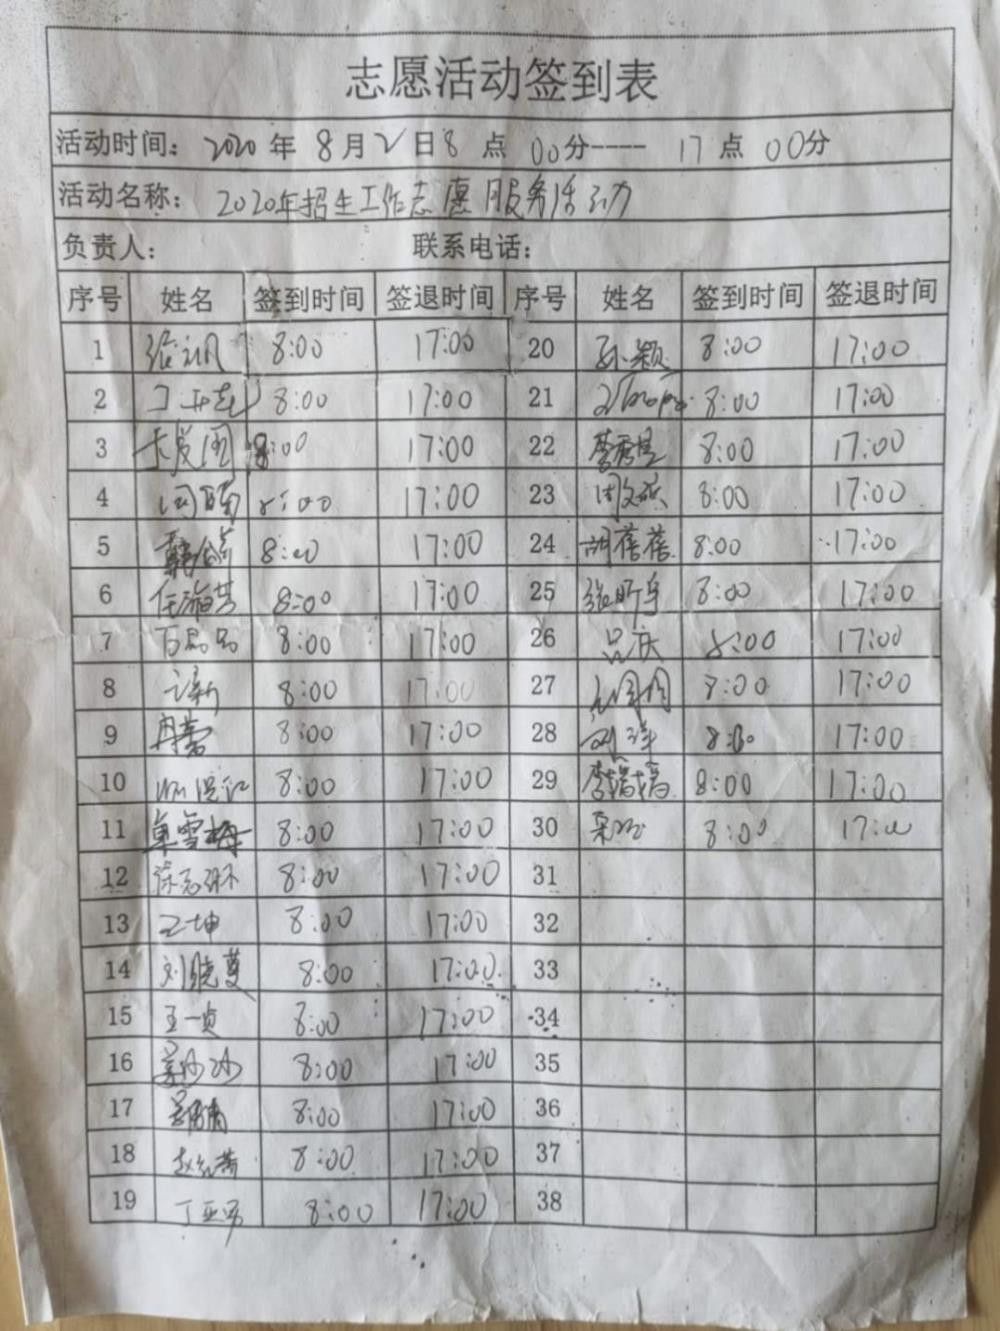 志愿活动签到表
活动时间: 2020 年 8 月 2 日 8 点 00 分---- 17 点 00 分
活动名称: 2020年招生工作志愿服务活动
负责人: 联系电话:
序号 姓名 签到时间 签退时间 序号 姓名 签到时间 签退时间
1 8:00 17:00 20 孙颖 8:00 17:00
2 8:00 17:00 21 8:00 17:00
3 8:00 17:00 22 8:00 17:00
4 8:00 17:00 23 8:00 17:00
5 8:00 17:00 24 胡蓓蓓 8:00 17:00
6 8:00 17:00 25 8:00 17:00
7 8:00 17:00 26 吕庆 8:00 17:00
8 8:00 17:00 27 8:00 17:00
9 冉蕾 8:00 17:00 28 刘洋 8:00 17:00
10 8:00 17:00 29 8:00 17:00
11 卓雪梅 8:00 17:00 30 8:00 17:00
12 8:00 17:00 31
13 王坤 8:00 17:00 32
14 刘晓莫 8:00 17:00 33
15 王一贞 8:00 17:00 34
16 姜沙沙 8:00 17:00 35
17 8:00 17:00 36
18 8:00 17:00 37
19 丁亚男 8:00 17:00 38